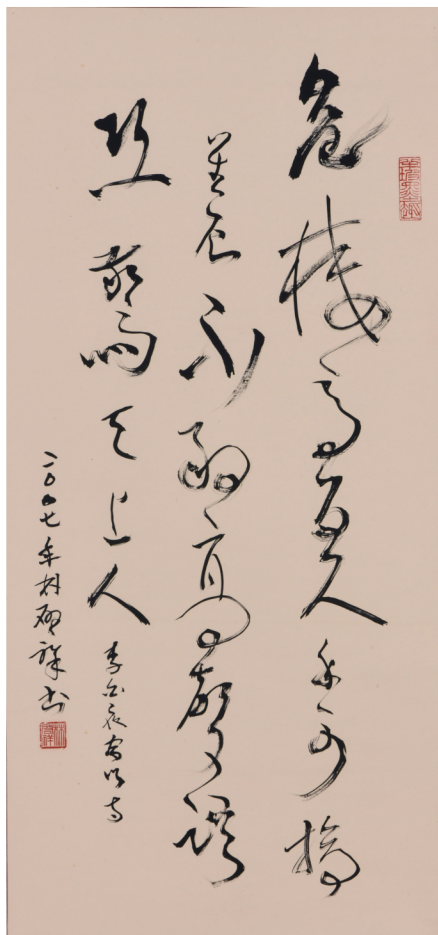 危樓高百尺手可摘
星辰不敢高聲語
恐驚天上人
李白夜宿山寺
二〇〇七年林祥书